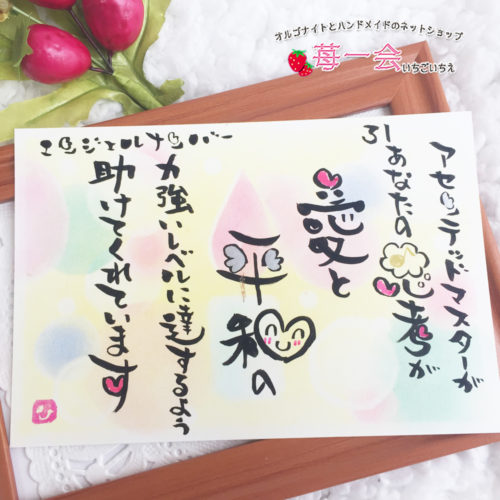 オルゴナイトとハンドメイドのネットショップ
苺一会
いちごいちえ
アセンデッドマスターが
31 あなたの思考が
愛と
平和の
力強いレベルに達するよう
助けてくれています
エンジェルナンバー